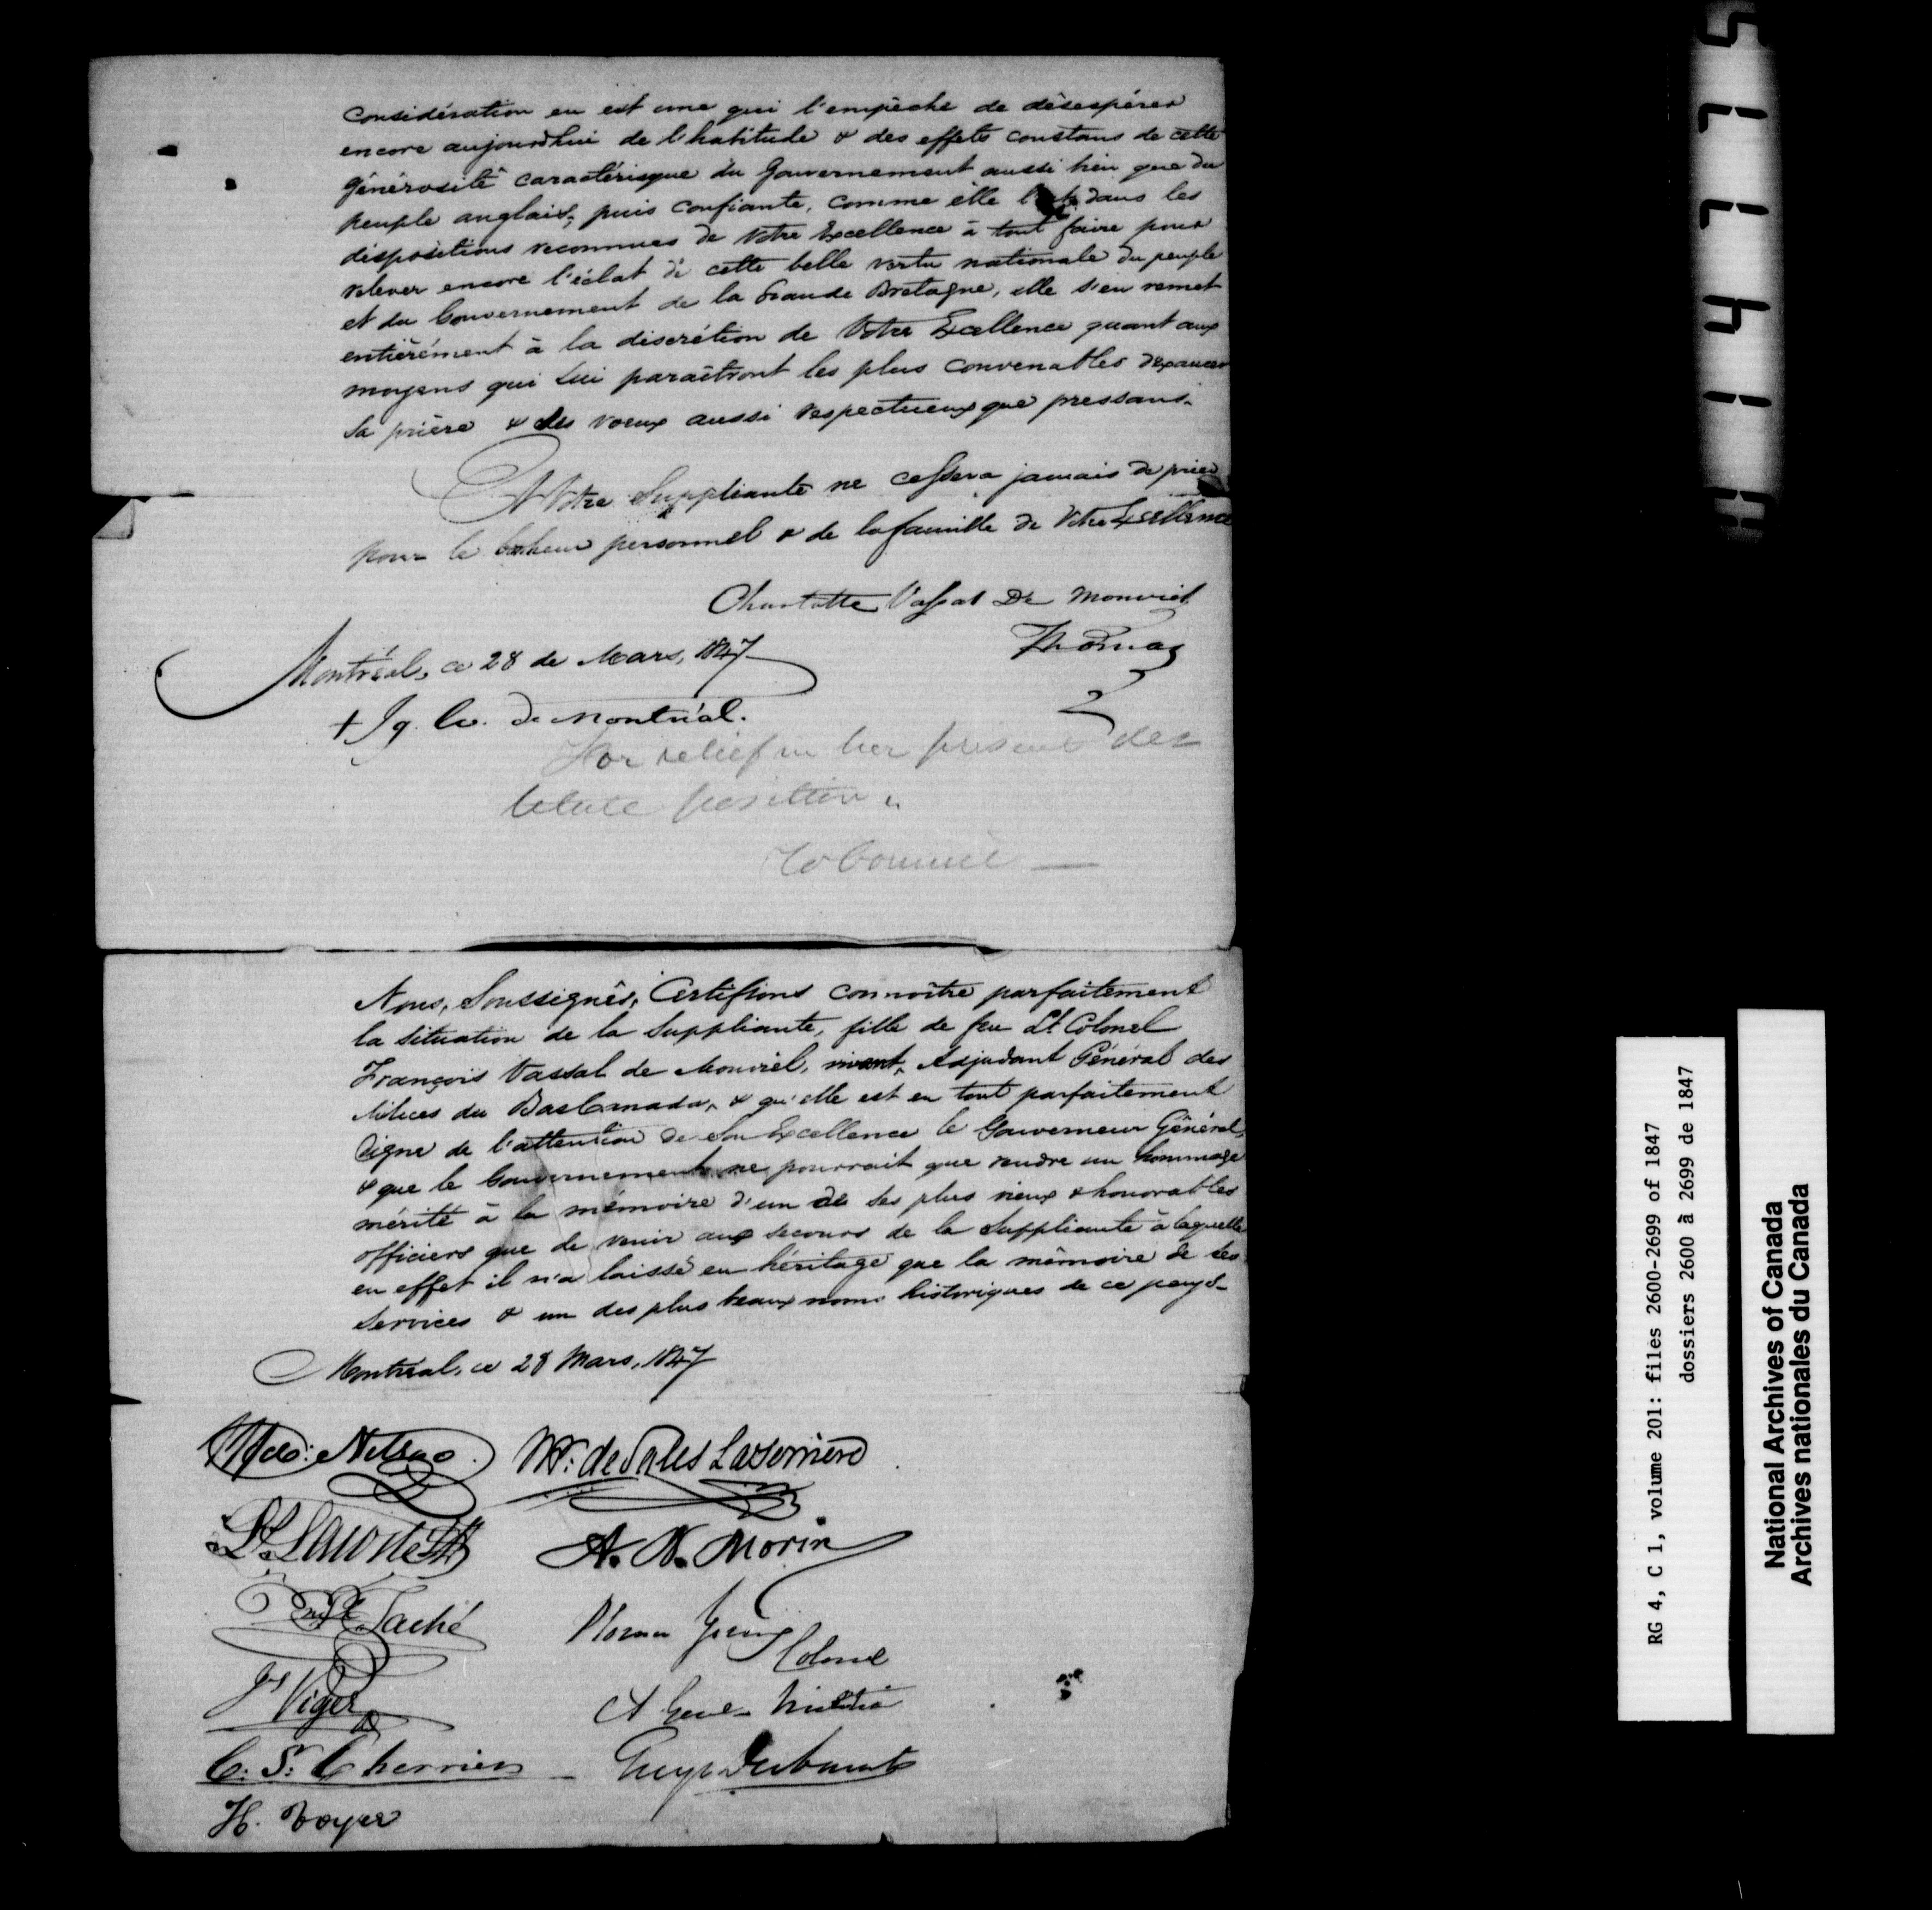 considération en est une qui l'empêche de désespérer
encore aujourdhui de l'habitude & des effets constans de cette
générosité caractérisque du Gouvernement aussi bien que du
peuple anglais; puis confiante, comme elle dans les
dispositions reconnues de Votre Excellence à tout faire pour
relever encore l'éclat de cette belle vertu nationale du peuple
et du Gouvernement de la Grande Bretagne, elle s'en remet
entièrement à la discrétion de Votre Excellence quant aux
moyens qui lui paraîtront les plus convenables d'exaucer
sa prière & des voeux aussi respectueux que pressans.
Votre Suppliante ne cessera jamais de prier
pour le bonheur personnel & de la famille de Votre Excellence
Charlotte Vassal De Monviel
Thomas
Montréal, ce 28 de Mars, 1847
+ Ig. Ev. de Montréal.
For relief in her present des
titute position.
Nous, Soussignés, Certifions connoître parfaitement
la situation de la Suppliante, fille de feu Lt. Colonel
François Vassal de Monviel, vivant, Adjudant Général des
Milices du Bas Canada, & qu'elle est en tout parfaitement
digne de l'attention de Son Excellence le Gouverneur Général,
& que le Gouvernement ne pourrait que rendre un hommage
mérité à la mémoire d'un de ses plus vieux & honorables
officiers que de venir aux secours de la Suppliante à laquelle
en effet il n'a laissé en héritage que la mémoire de ses
services & un des plus beaux noms historiques de ce pays.
Montréal, ce 28 Mars, 1847
Nelson
M. de Sales Laterrière
A. N. Morin
Taché
Colonel
Js Viger
A Genl. Militia
C. S. Cherrier
H. Boyer
RG 4, C 1, volume 201: files 2600-2699 of 1847
dossiers 2600 à 2699 de 1847
National Archives of Canada
Archives nationales du Canada